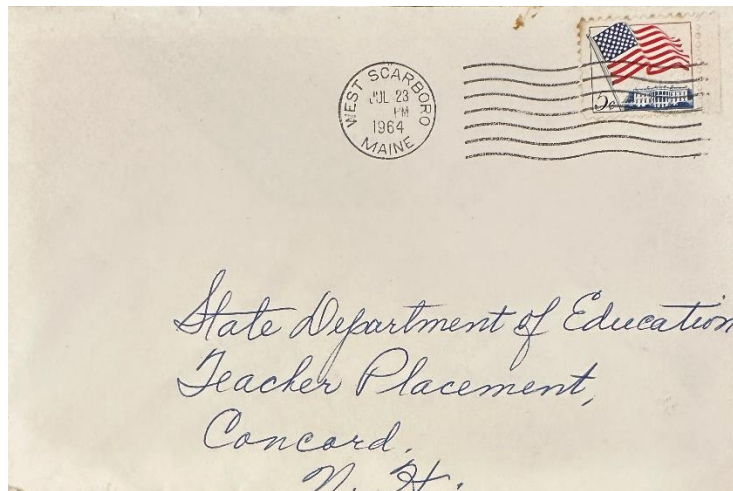 WEST SCARBORO
JUL 23
PM
1964
MAINE
5¢
State Department of Education
Teacher Placement,
Concord.
N. H.